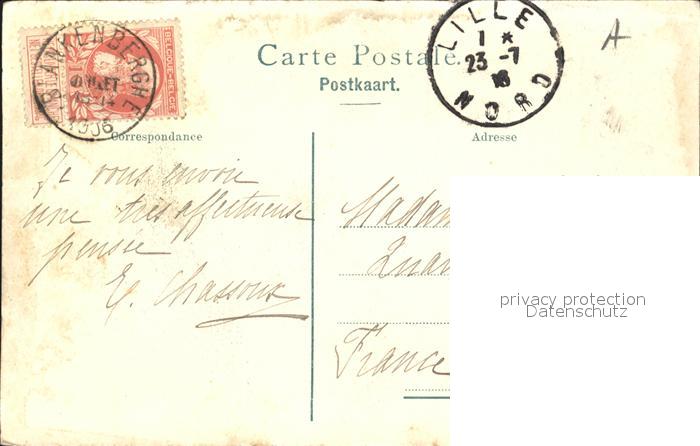 BLANKENBERGHE
JUILLET
1906
BELGIQUE-BELGIË
LILLE
1 *
23 -7
NORD
A
Carte Postale.
Postkaart.
Correspondance
Adresse
Je vous envoie
une très affectueuse
pensée
E. Chassoux
Madam
France
privacy protection
Datenschutz